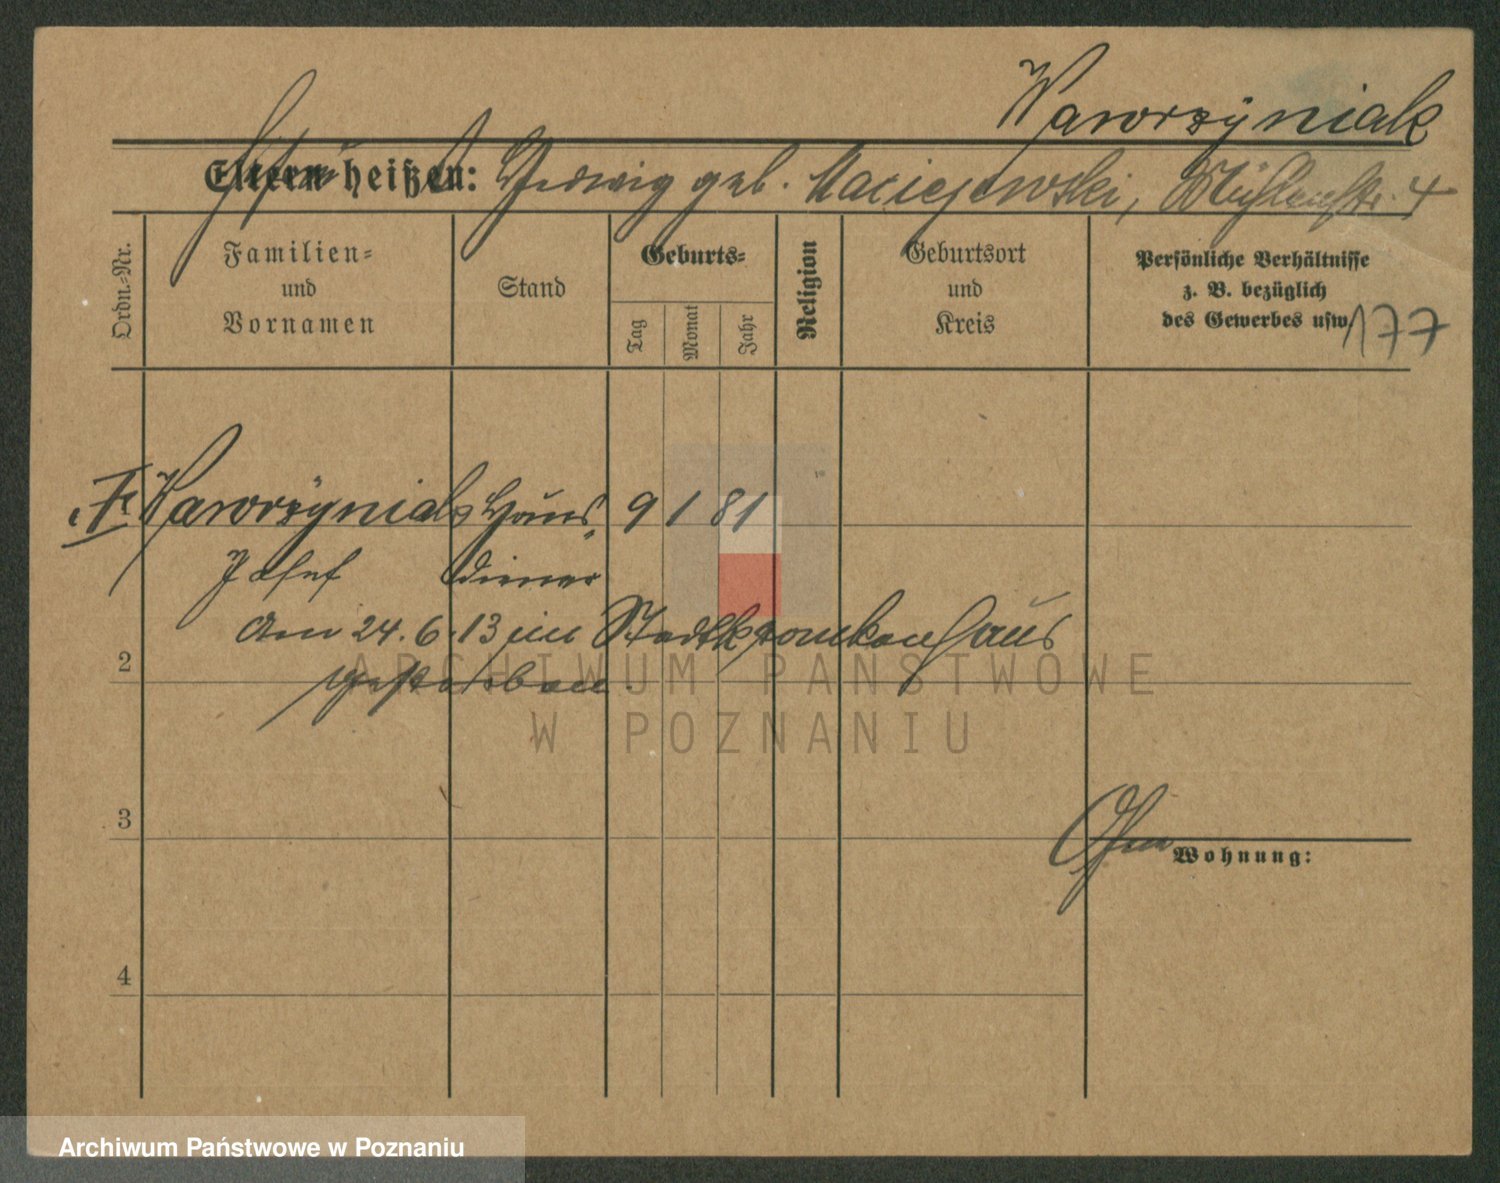 Wawrzyniak
Eltern heißen: Hedwig geb. Maciejewski, Mühlenstr. 4
Ordn.-Nr.
Familien-
und
Vornamen
Stand
Geburts-
Tag
Monat
Jahr
Religion
Geburtsort
und
Kreis
Persönliche Verhältnisse
z. B. bezüglich
des Gewerbes usw.
177
Wawrzyniak Haus- 9 1 81
Josef diener
am 24.6.13 im Stadtkrankenhaus
2
gestorben.
3
Wohnung:
4
ARCHIWUM PAŃSTWOWE
W POZNANIU
Archiwum Państwowe w Poznaniu